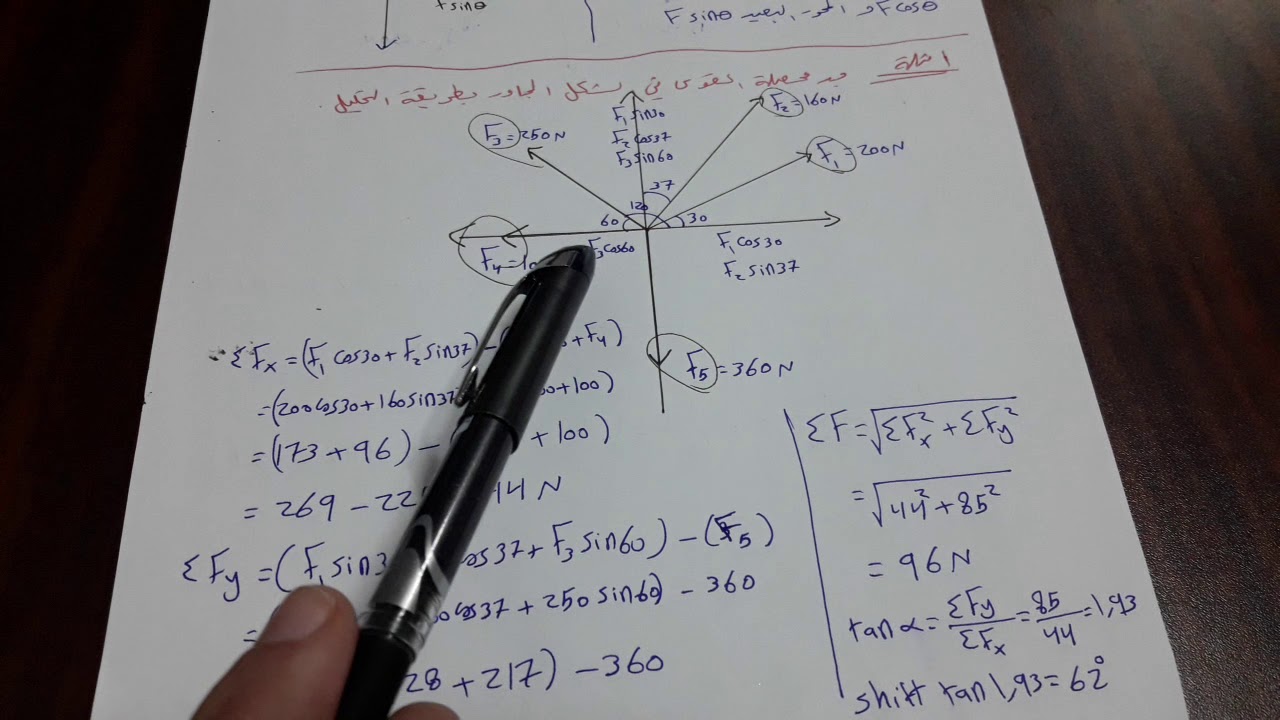 Fsinθ
Fcosθ و المحور البعيد Fsinθ
امثلة جد محصلة القوى في الشكل المجاور بطريقة التحليل.
F₁sin30
F₂cos37
F₃sin60
F₂=160N
F₃=250N
F₁=200N
37
120
60
30
F₃cos60
F₁cos30
F₂sin37
F₄=10
F₅=360N
ΣFx=(F₁cos30+F₂sin37)-( +F₄)
=(200cos30+160sin37 +100)
=(173+96)- +100)
=269-22 44N
ΣFy=(F₁sin3 cos37+F₃sin60)-(F₅)
= cos37+250sin60)-360
28+217)-360
ΣF=√ΣFx²+ΣFy²
=√44²+85²
=96N
tanα=ΣFy/ΣFx=85/44=1,93
shift tan1,93=62°